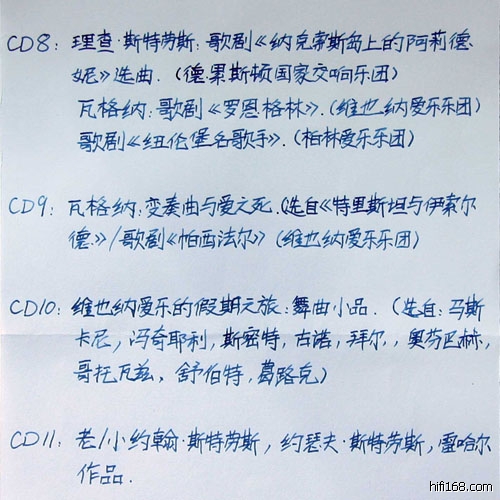 CD8: 理查·斯特劳斯:歌剧《纳克索斯岛上的阿莉德
妮》选曲.(德累斯顿国家交响乐团)
瓦格纳:歌剧《罗恩格林》.(维也纳爱乐乐团)
歌剧《纽伦堡名歌手》.(柏林爱乐乐团)
CD9: 瓦格纳:变奏曲与爱之死.(选自《特里斯坦与伊索尔
德》/歌剧《帕西法尔》(维也纳爱乐乐团)
CD10: 维也纳爱乐的假期之旅:舞曲小品.(选自:马斯
卡尼,冯奇耶利,斯密特,古诺,拜尔,奥芬巴赫,
哥托瓦兹,舒伯特,葛路克)
CD11: 老/小约翰·斯特劳斯,约瑟夫·斯特劳斯,雷哈尔
作品.
hifi168.com